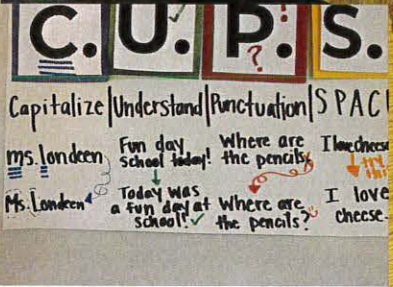 C. U. P. S.
Capitalize Understand Punctuation SPACI
ms. londeen
Ms. Londeen
Fun day
school today!
Today was
a fun day at
school!
Where are
the pencils
Where are
the pencils?
I lovecheese
try
this
I love
cheese.